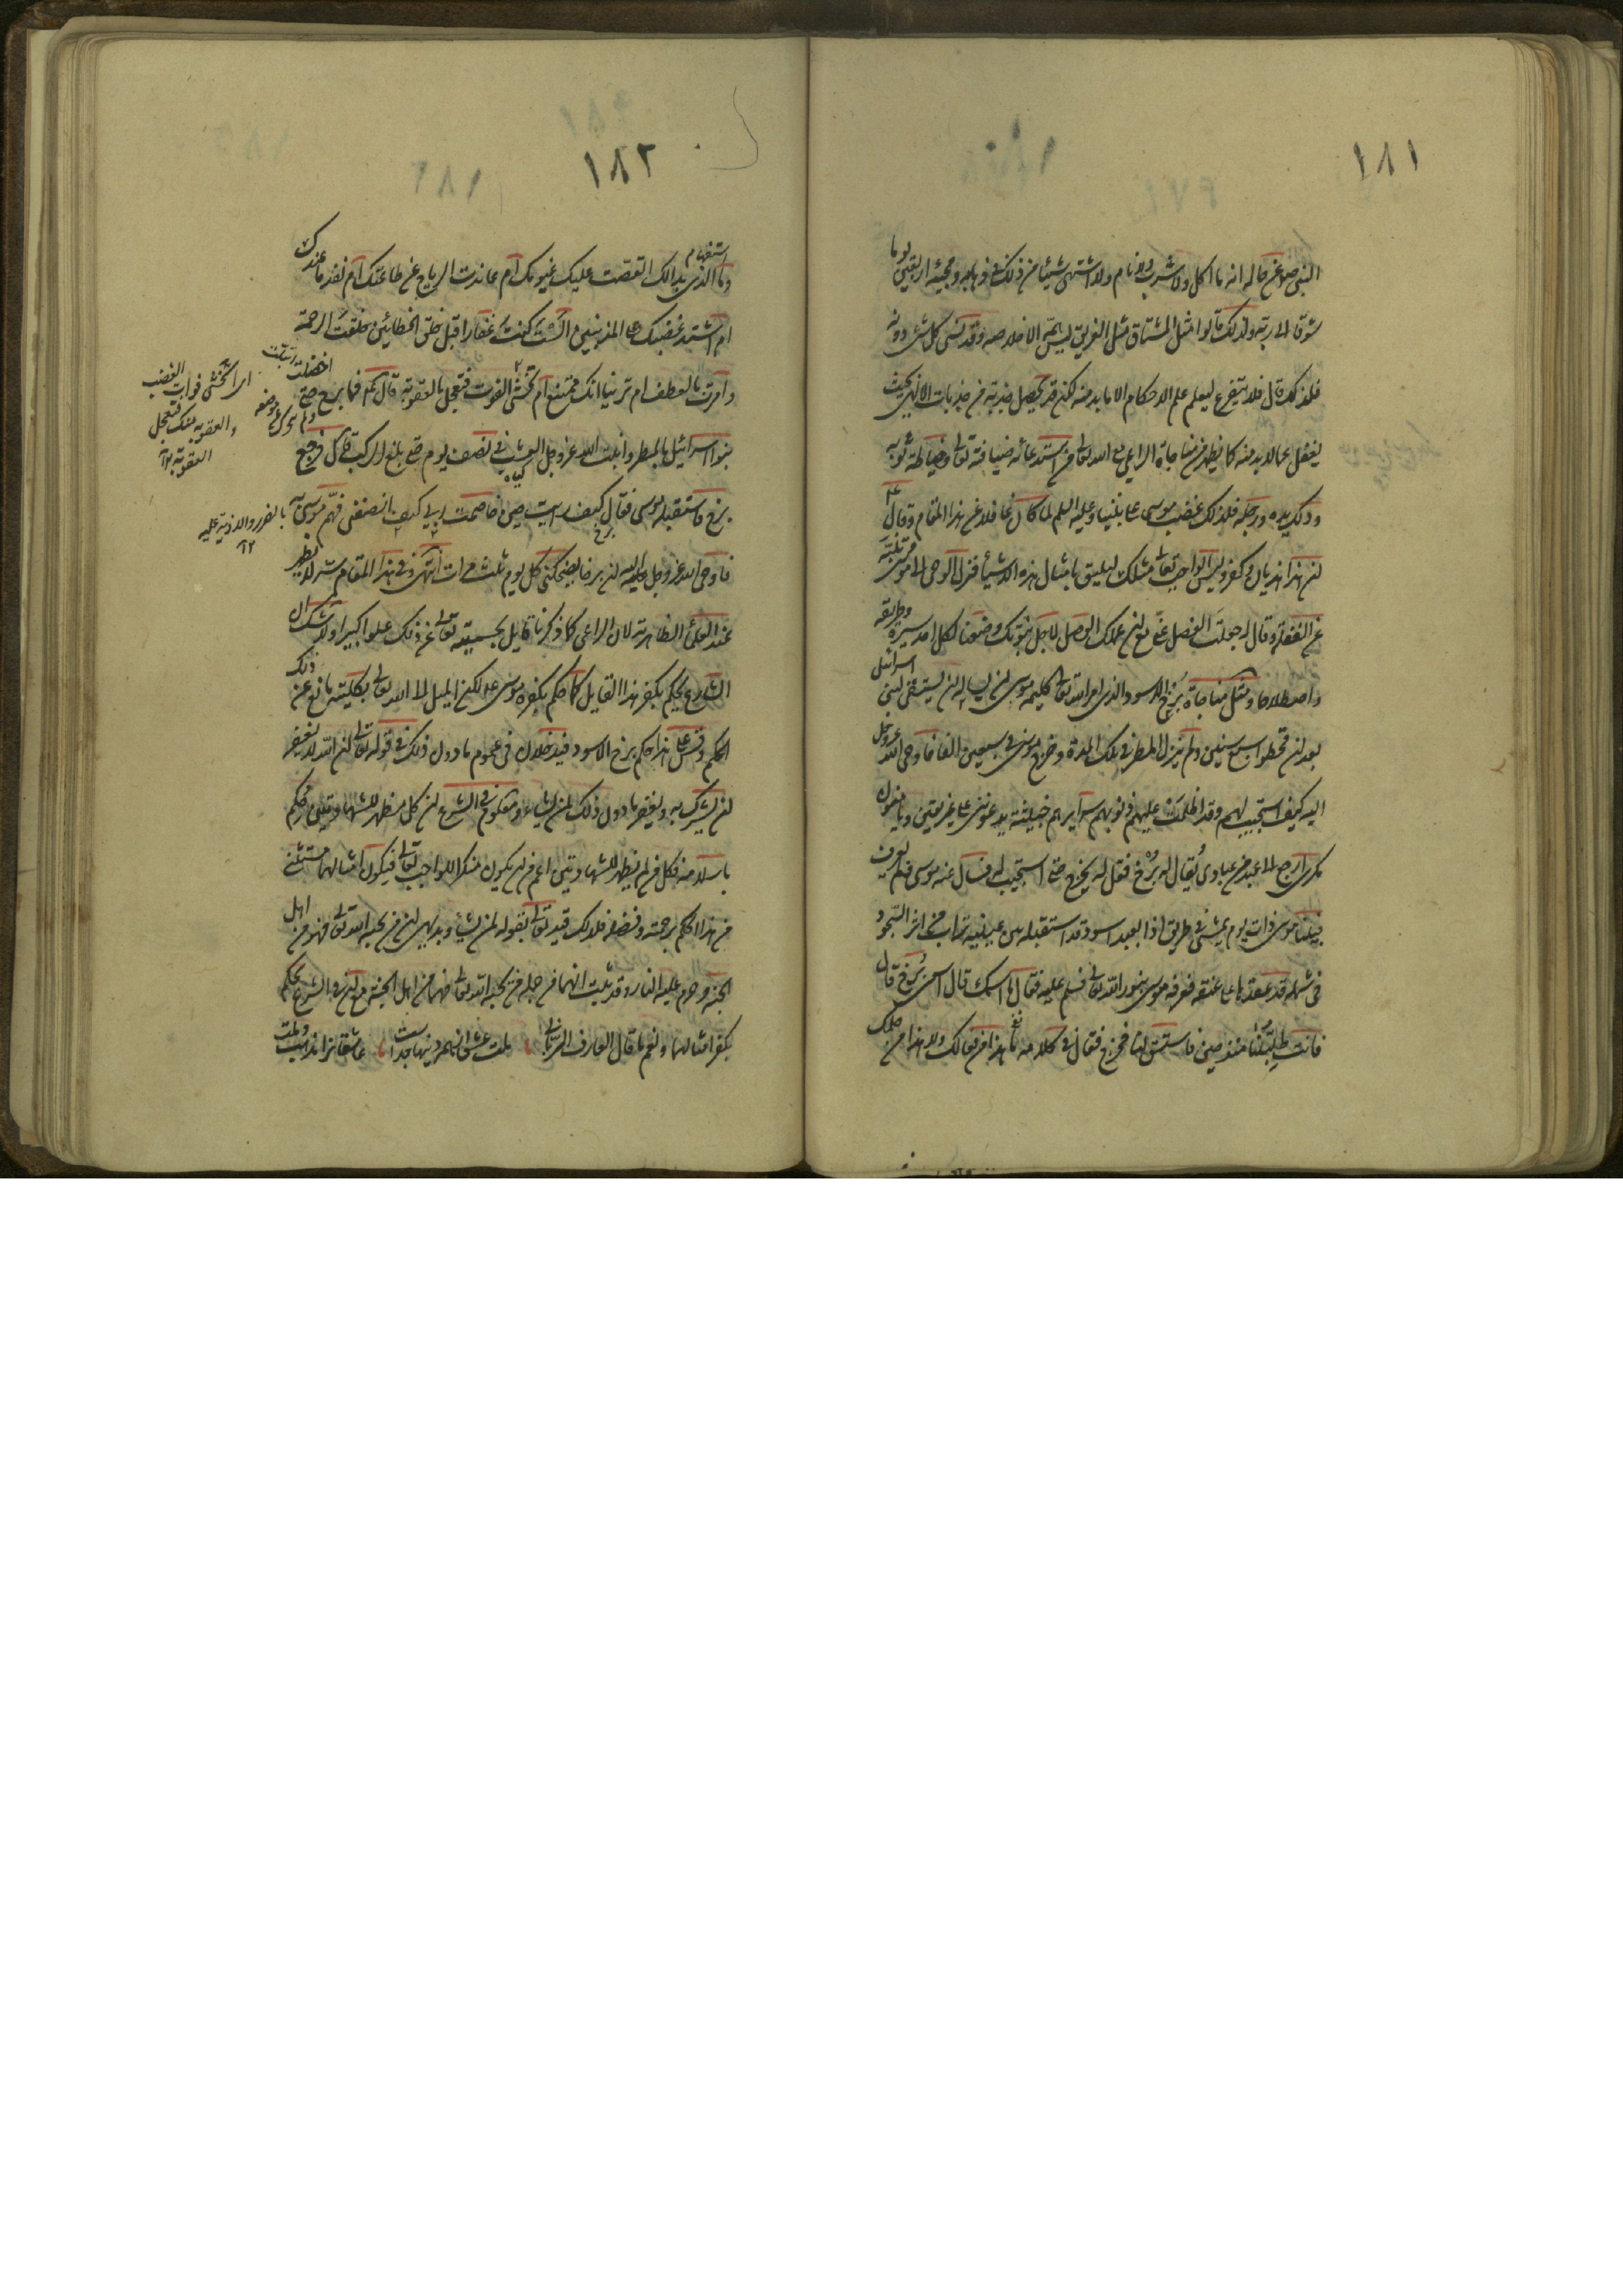 ١٨١
النبى ص عن حاله انه ما اكل ولا شرب ولا نام ولا اشتهى شيئا من ذلك فى ذهابه ومجيئه اربعين يوما
شوقا الى ربه ولذلك قالوا مثل المشتاق مثل الغريق ليس له همة الا خلاصه وقد نسى كل شئ دونه
فلذلك قال فلا يتفرغ ليعلم علم الاحكام الا ما بد منه لكن قد يحصل جذبة من جذبات الالهى بحيث
يغفل عما لا بد منه كما يظهر من مناجاة الراعى مع الله تعالى من استدعائه ضيافته تعالى وخياطة ثوبه
ودلك يده ورجله فلذلك غضب موسى على نبينا وعليه السلم لما كان غافلا عن هذا المقام وقال
ان هذا هذيان وكفر وليس الواجب تعالى مثلك ليليق بامثال هذه الاشياء فنزل الوحى الى موسى
عن الغفلة وقال له جعلت الفصل مع ان عملك الوصل لاجل نبوتك وضعنا لكل احد سيرة وطريقة
واصطلاحا ومثل مناجاة برخ الاسود الذى امر الله تعالى كليمه موسى ان يساله ان يستسقى لبنى اسرائيل
بعد ان قحطوا سبع سنين ولم ينزل المطر فى تلك المدة وخرج موسى فى سبعين الفا فاوحى الله عز وجل
اليه كيف استجيب لهم وقد اظلمت عليهم ذنوبهم سرايرهم خبيثة يدعوننى على غير يقين ويامنون
مكرى ارجع الى عبد من عبادى يقال له برخ فقل له يخرج حتى استجيب له فسال عنه موسى فلم يعرف
فبينما موسى ذات يوم يمشى فى طريق اذا بعبد اسود قد استقبله بين عينيه تراب من اثر السجود
فى شملة قد عقدها على عنقه فعرفه موسى بنور الله تعالى فسلم عليه فقال ما اسمك قال اسمى برخ قال
فانت طلبتنا منذ حين فاستسق لنا فخرج فقال فى كلامه ما هذا من فعالك ولا هذا من حلمك
١٨٢
وما الذى بدا لك انقصت عليك غيومك ام عاندت الرياح عن طاعتك ام نفد ما عندك
ام اشتد غضبك على المذنبين الست كنت غفارا قبل خلق الخطائين خلقت الرحمة
وامرت بالعطف ام ترينا انك ممتنع ام تخشى الفوت فتعجل بالعقوبة قال فما برح حتى اخضلت
بنو اسرائيل بالمطر وانبت الله عز وجل العشب فى نصف يوم حتى بلغ الركب قال فرجع
برخ فاستقبله موسى فقال كيف رايت حين خاصمت ربى كيف انصفنى فهم موسى به
فاوحى الله عز وجل اليه ان برخا يضحكنى كل يوم ثلث مرات انتهى وفى هذا المقام سر لا يظهر
عند العلماء الظاهرية لان الراعى كما ذكرنا قايل بجسميته تعالى عن ذلك علوا كبيرا ولا شك ان
الشارع يحكم بكفر هذا القايل كما حكم بكفره موسى ع لكن الميل الى الله تعالى بكليته مانع عن ذلك
الحكم وقس على هذا حكم برخ الاسود فيدخلان فى عموم ما دون ذلك فى قوله تعالى ان الله لا يغفر
ان يشرك به ويغفر ما دون ذلك لمن يشاء ومعلوم فى الشرع ان كل مظهر للشهادتين محكم
باسلامه فكل من لم يظهر للشهادتين اعم من ان يكون منكرا للواجب تعالى فيكون امثالهما مستثنى
من هذا الحكم برحمته وفضله فلذلك قيد تعالى بقوله لمن يشاء وبديهى ان من يحبه الله تعالى فهو من اهل
الجنة وحرم عليه النار وقد ثبت انهما من جملة من يحبه الله تعالى فهما من اهل الجنة مع ان فى الشرع يحكم
بكفر امثالهما ونعم ما قال العارف الربانى ملت عشق از همه دينها جداست عاشقانرا مذهب وملت
استفهام
اى تخشى فوات الغضب
والعقوبة منك فتعجل
العقوبة ١٢
بالضرر والاذية عليه
١٢